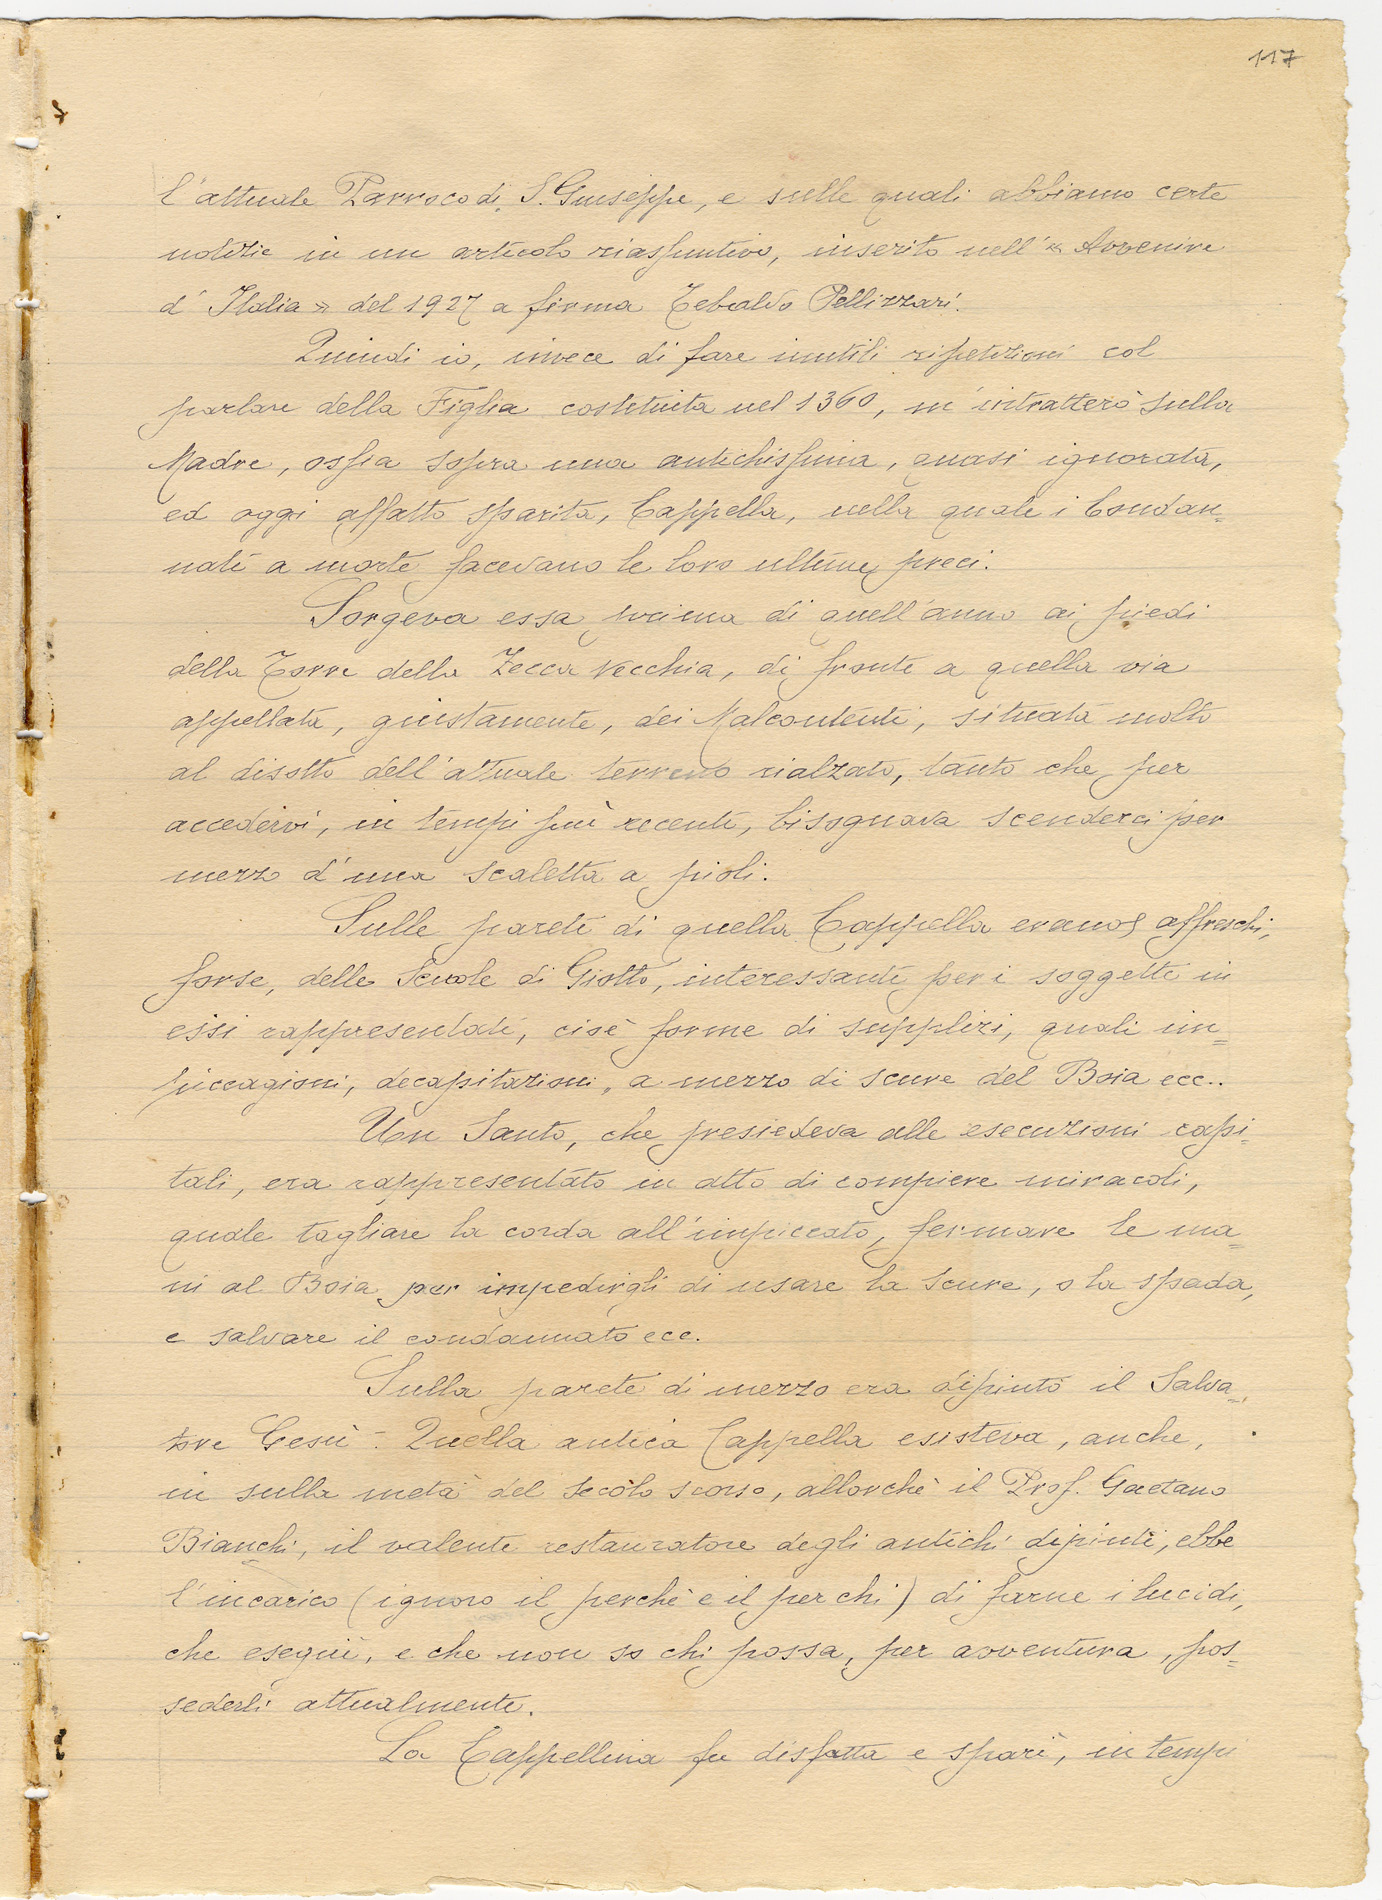 117
l'attuale Parroco di S. Giuseppe, e sulle quali abbiamo certe
notizie in un articolo riassuntivo, inserito nell'« Avvenire
d'Italia » del 1927 a firma Tebaldo Pellizzari.
Quindi io, invece di fare inutili ripetizioni col
parlare della Figlia costituita nel 1360, m'intratterò sulla
Madre, ossia sopra una antichissima, quasi ignorata,
ed oggi affatto sparita, Cappella, nella quale i Condan=
nati a morte facevano le loro ultime preci.
Sorgeva essa prima di quell'anno ai piedi
della Torre della Zecca Vecchia, di fronte a quella via
appellata, giustamente, dei Malcontenti, situata molto
al disotto dell'attuale terreno rialzato, tanto che per
accedervi, in tempi più recenti, bisognava scenderci per
mezzo d'una scaletta a pioli.
Sulle pareti di quella Cappella erano affreschi,
forse, delle Scuole di Giotto, interessanti per i soggetti in
essi rappresentati, cioè forme di supplizi, quali im=
piccagioni, decapitazioni, a mezzo di scure del Boia ecc..
Un Santo, che presiedeva alle esecuzioni capi=
tali, era rappresentato in atto di compiere miracoli,
quale tagliare la corda all'impiccato, fermare le ma=
ni al Boia per impedirgli di usare la scure, o la spada,
e salvare il condannato ecc.
Sulla parete di mezzo era dipinto il Salva=
tore Gesù - Quella antica Cappella esisteva, anche,
in sulla metà del secolo scorso, allorchè il Prof. Gaetano
Bianchi, il valente restauratore degli antichi dipinti, ebbe
l'incarico (ignoro il perchè e il per chi) di farne i lucidi,
che eseguì, e che non so chi possa, per avventura, pos=
sederli attualmente.
La Cappellina fu disfatta e sparì, in tempi